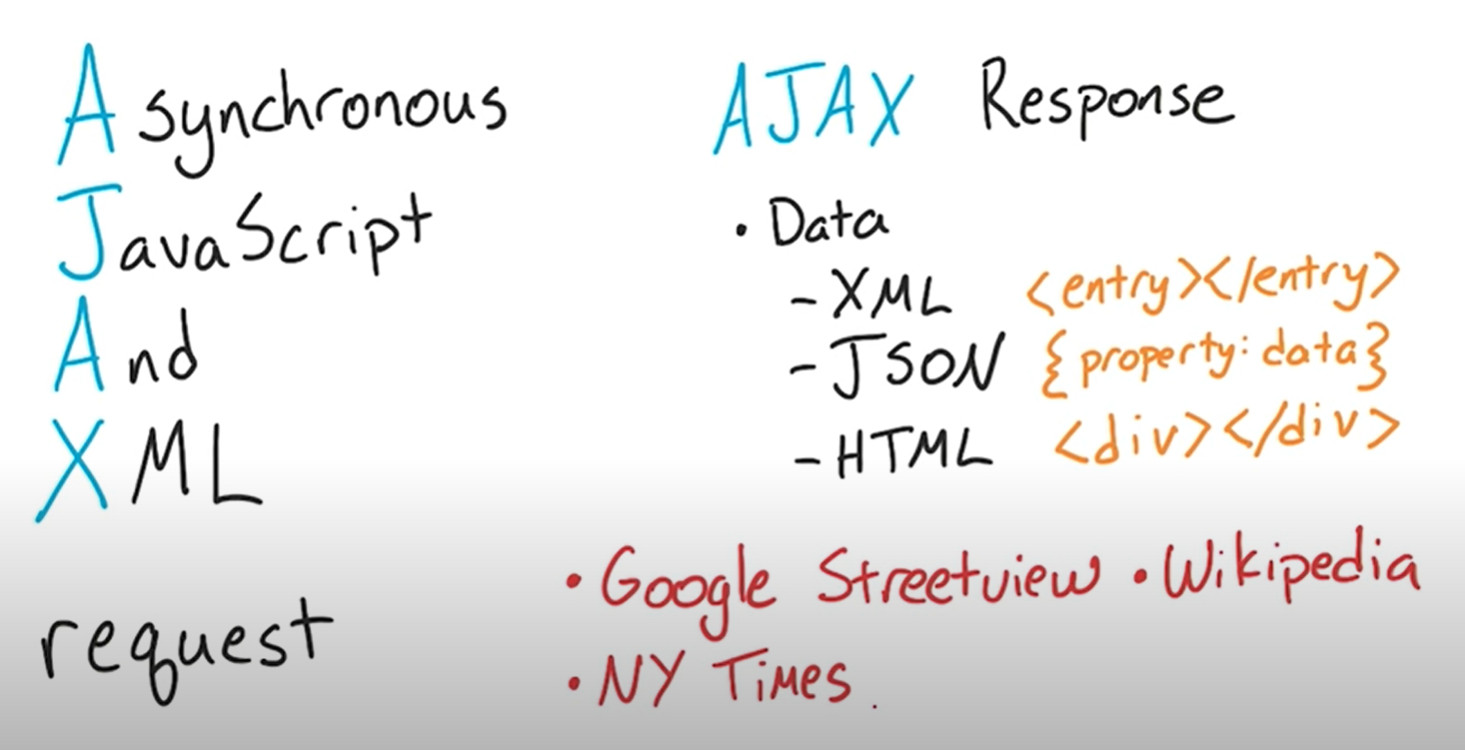 Asynchronous
JavaScript
And
XML
request
AJAX Response
• Data
- XML <entry></entry>
- JSON {property: data}
- HTML <div></div>
• Google Streetview • Wikipedia
• NY Times.